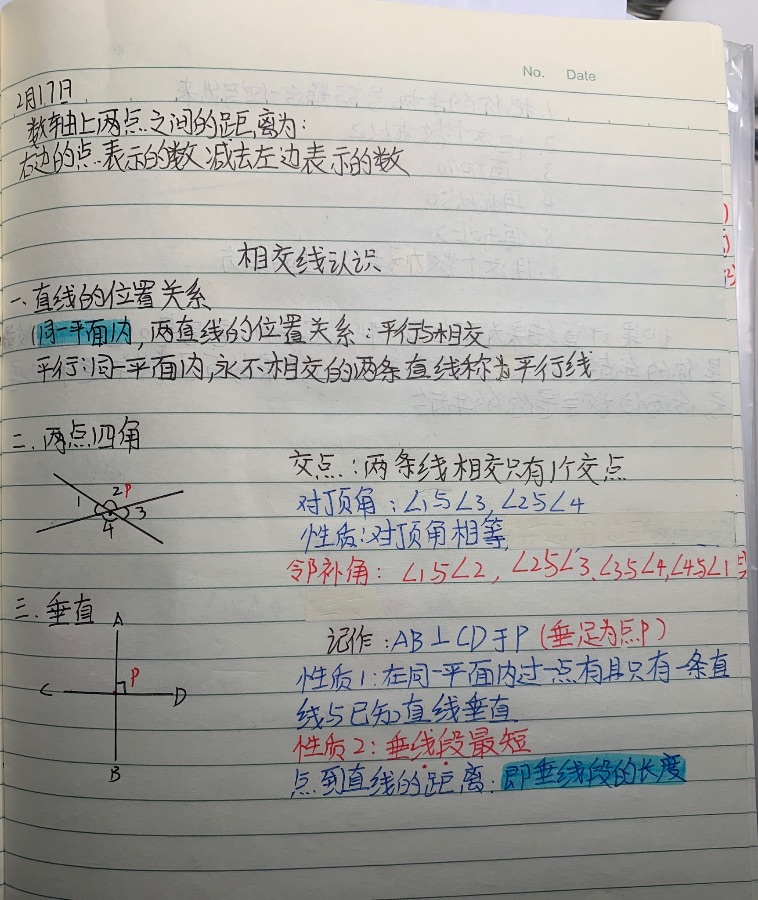 No. Date
2月17日
数轴上两点之间的距离为:
右边的点表示的数减去左边表示的数
相交线认识
一、直线的位置关系
同一平面内,两直线的位置关系:平行与相交
平行:同一平面内,永不相交的两条直线称为平行线
二、两点四角
交点:两条线相交只有1个交点
1 2 P 3 4
对顶角:∠1与∠3,∠2与∠4
性质:对顶角相等
邻补角:∠1与∠2,∠2与∠3、∠3与∠4,∠4与∠1
三、垂直
A
记作:AB⊥CD于P(垂足为点P)
P
C D
B
性质1:在同一平面内过一点有且只有一条直
线与已知直线垂直
性质2:垂线段最短
点到直线的距离:即垂线段的长度